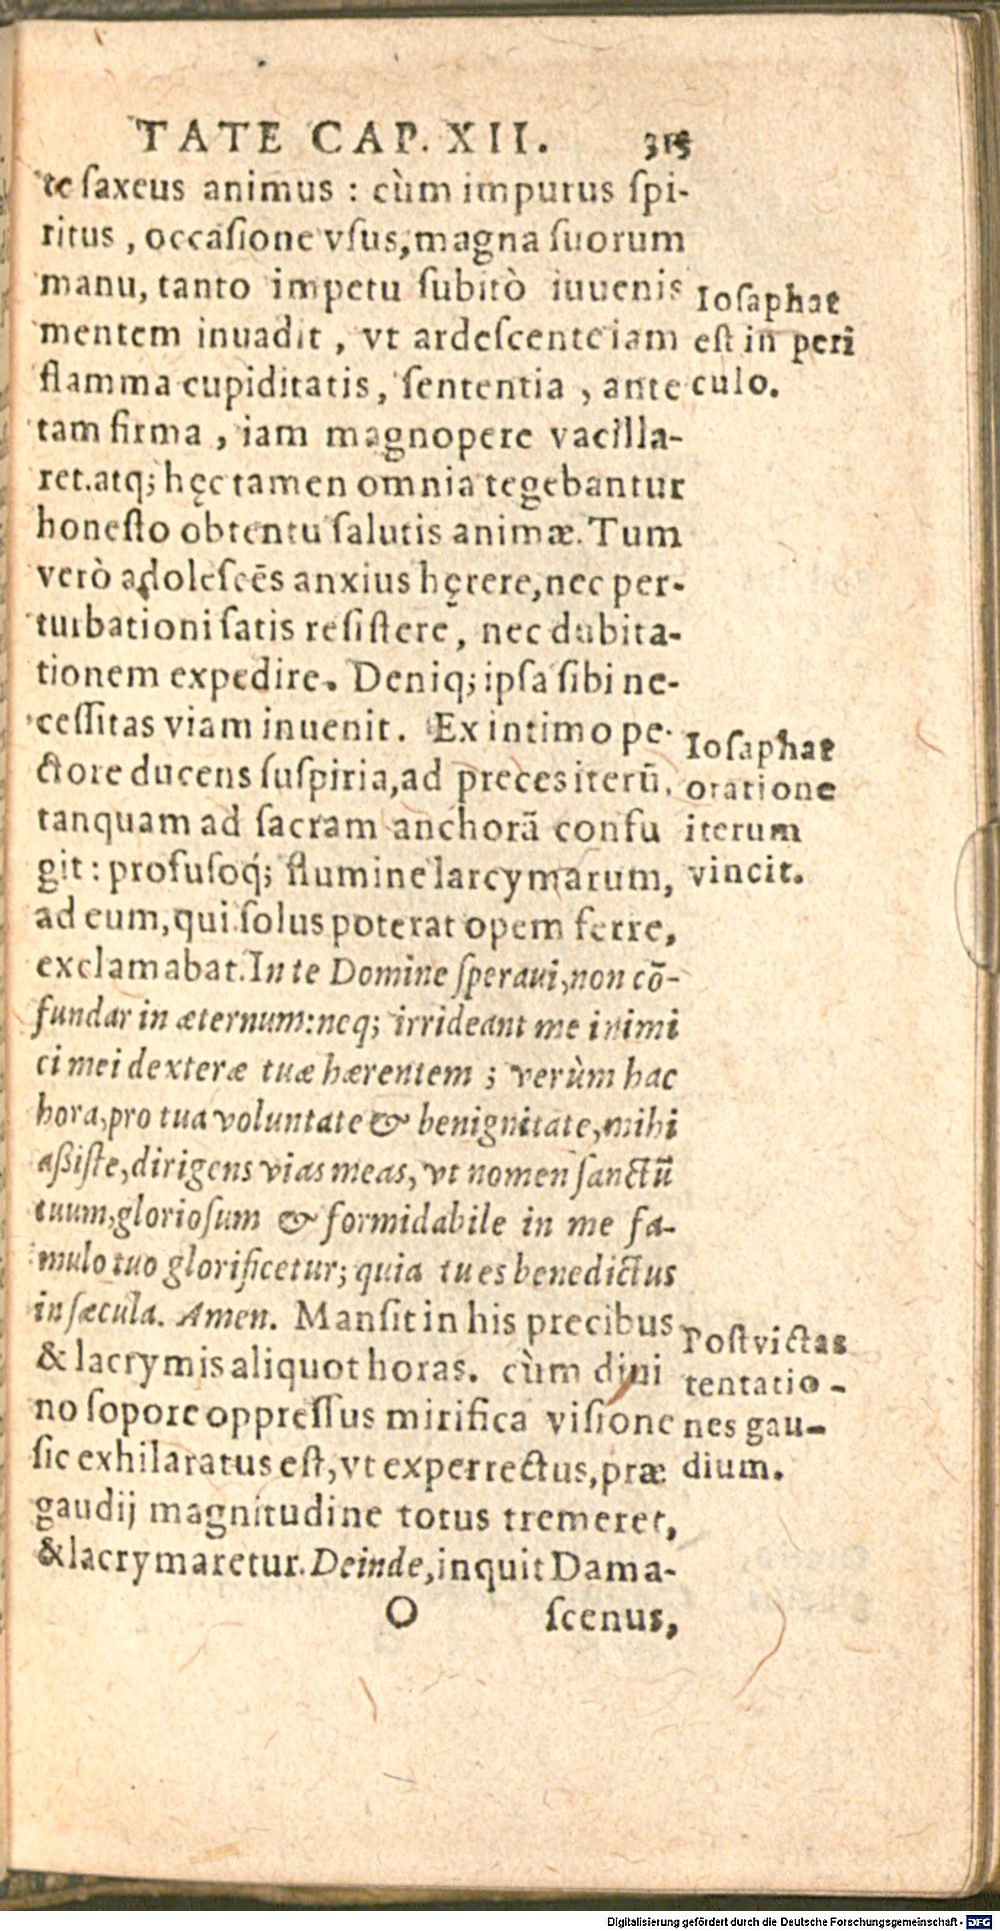 TATE CAP. XII. 315
te ſaxeus animus : cùm impurus ſpi-
ritus , occaſione vſus, magna ſuorum
manu, tanto impetu ſubitò iuuenis
mentem inuadit , vt ardeſcente iam
flamma cupiditatis , ſententia , ante
tam firma , iam magnopere vacilla-
ret. atq; hęc tamen omnia tegebantur
honeſto obtentu ſalutis animæ. Tum
verò adoleſcēs anxius hęrere, nec per-
turbationi ſatis reſiſtere, nec dubita-
tionem expedire. Deniq; ipſa ſibi ne-
ceſſitas viam inuenit. Ex intimo pe-
ctore ducens ſuſpiria, ad preces iterū,
tanquam ad ſacram anchorā confu
git : profuſoq́; flumine larcymarum,
ad eum, qui ſolus poterat opem ferre,
exclamabat. In te Domine ſperaui, non cō-
fundar in æternum: neq; irrideant me inimi
ci mei dexteræ tuæ hærentem ; verùm hac
hora, pro tua voluntate & benignitate, mihi
aßiſte, dirigens vias meas, vt nomen ſanctū
tuum, glorioſum & formidabile in me fa-
mulo tuo glorificetur; quia tu es benedictus
in ſæcula. Amen. Manſit in his precibus
& lacrymis aliquot horas. cùm diui
no ſopore oppreſſus mirifica viſione
ſic exhilaratus eſt, vt experrectus, præ
gaudij magnitudine totus tremeret,
& lacrymaretur. Deinde, inquit Dama-
O ſcenus,
Ioſaphat
eſt in peri
culo.
Ioſaphat
oratione
iterum
vincit.
Poſt victas
tentatio-
nes gau-
dium.
Digitalisierung gefördert durch die Deutsche Forschungsgemeinschaft - DFG